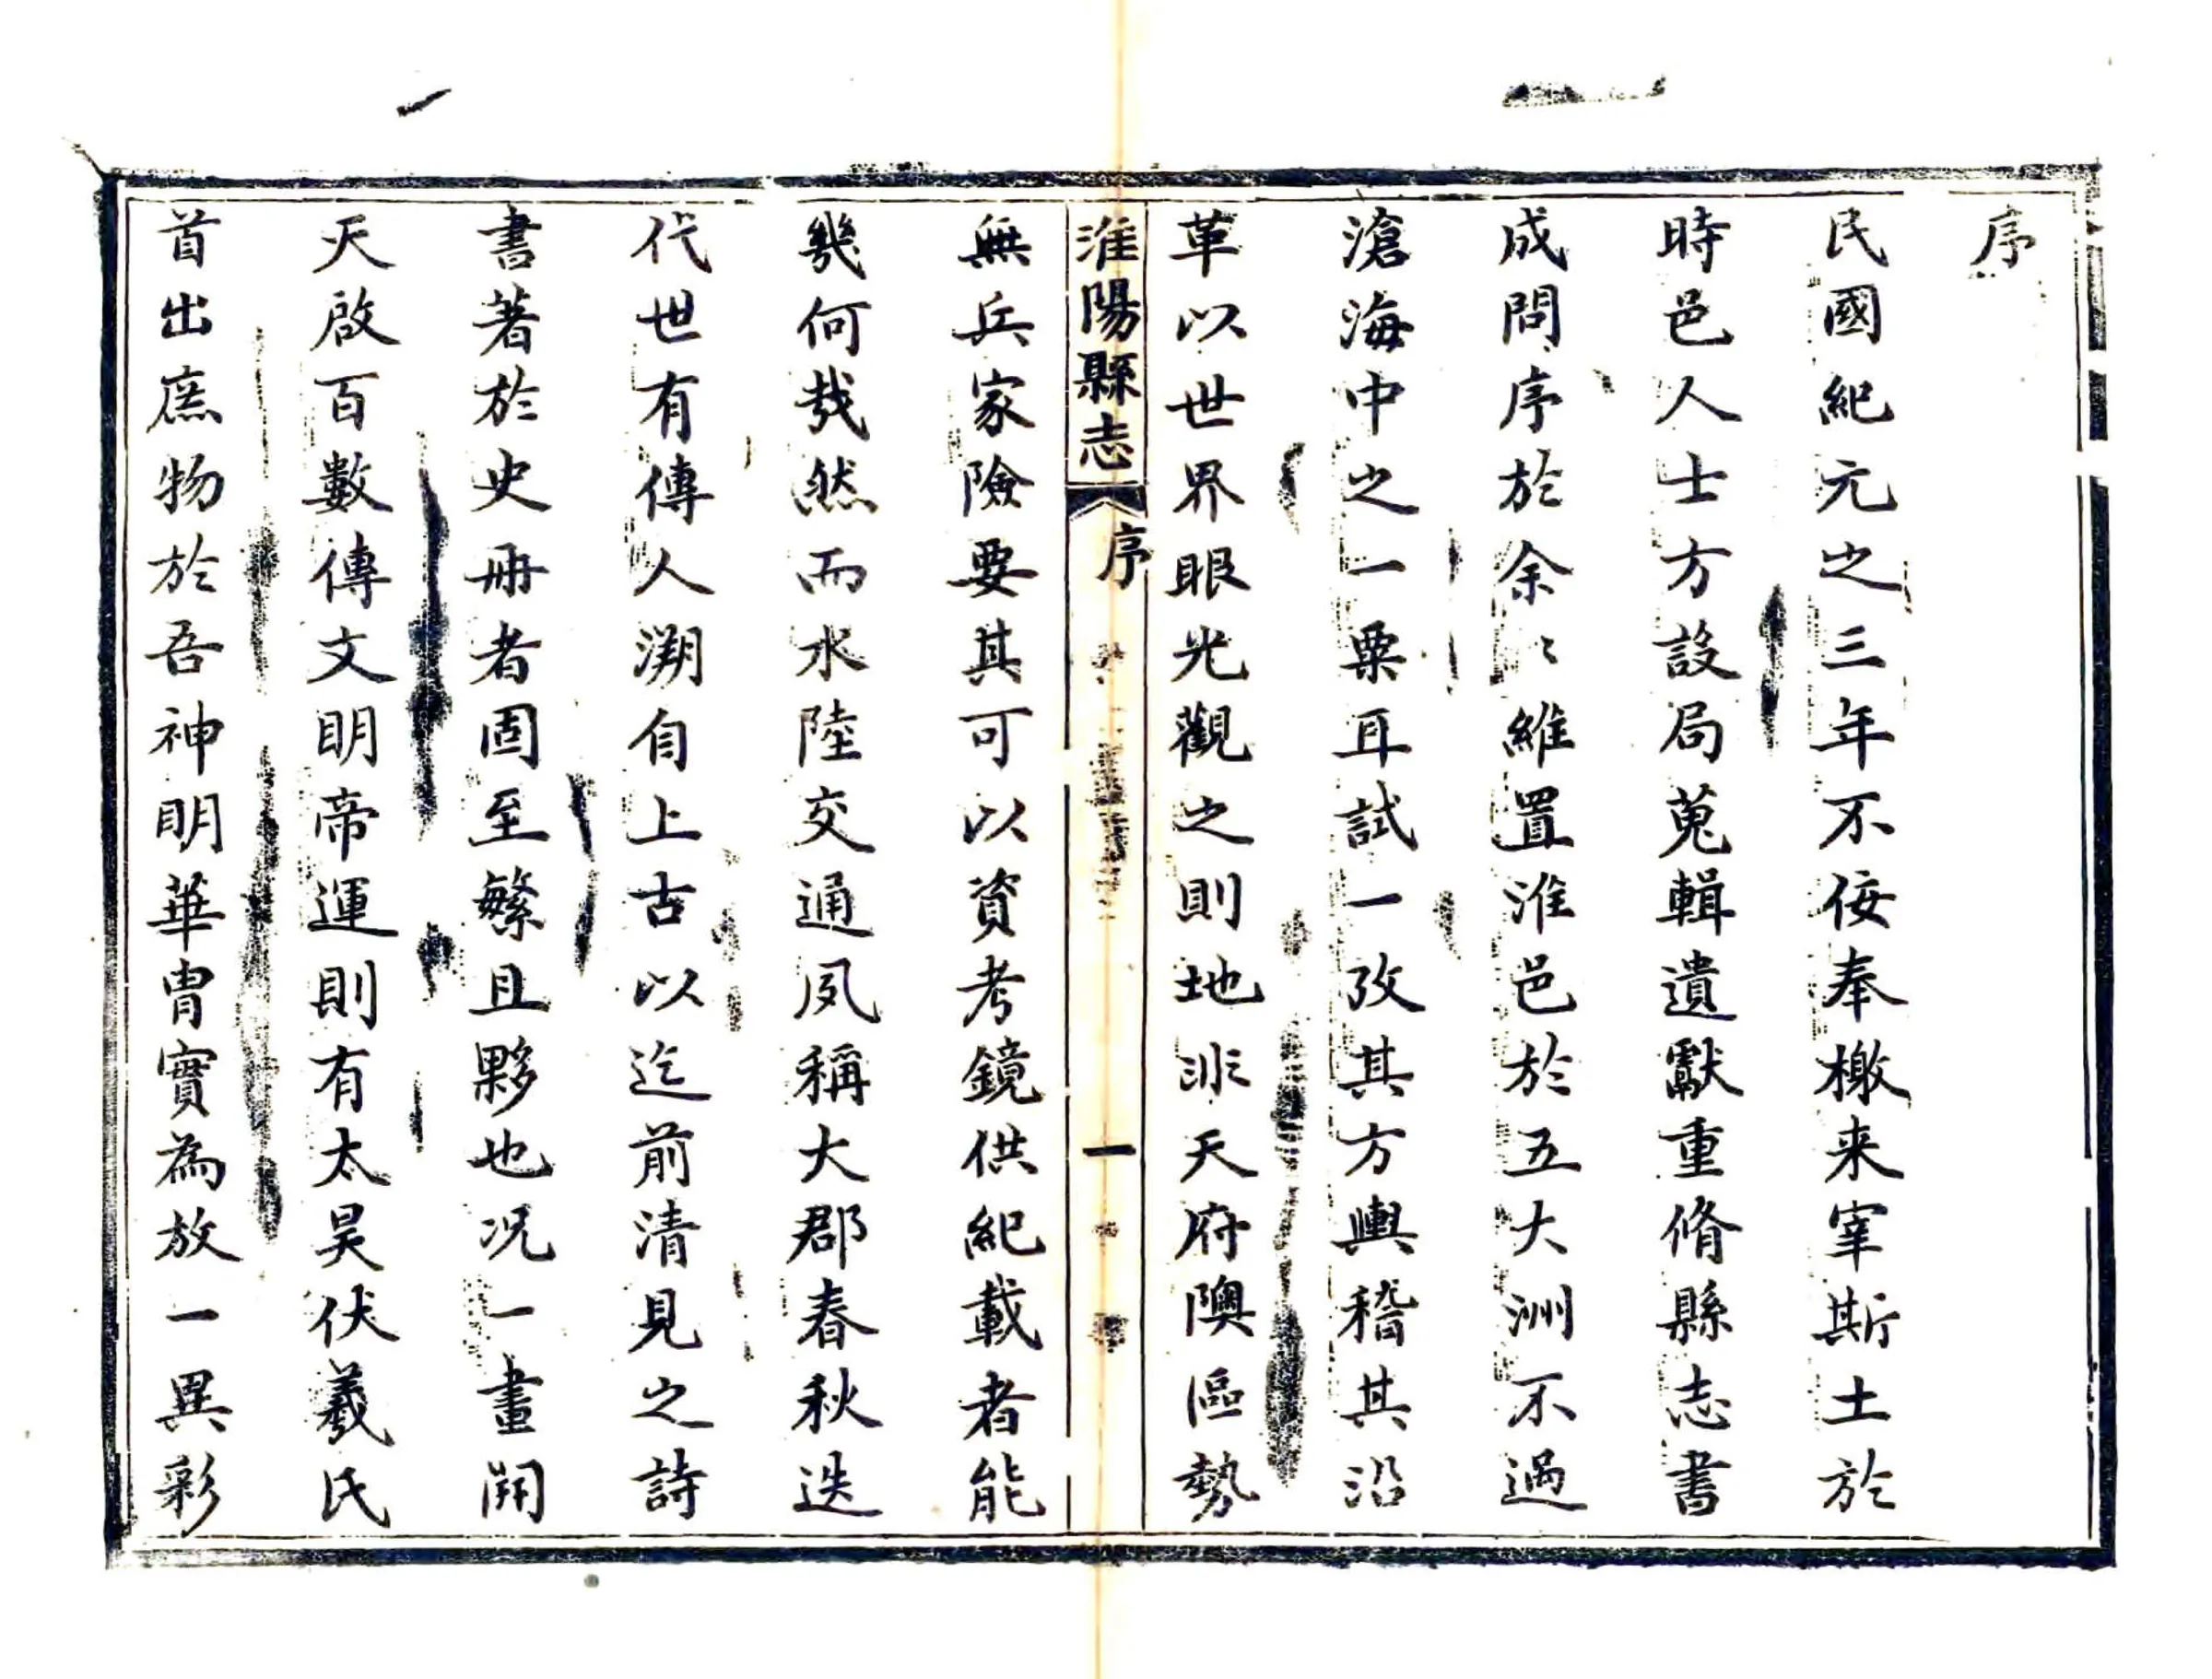 序
民國紀元之三年不佞奉檄来宰斯土於
時邑人士方設局蒐輯遺獻重脩縣志書
成問序於余〻維置淮邑於五大洲不過
滄海中之一粟耳試一攷其方輿稽其沿
革以世界眼光觀之則地非天府隩區勢
淮陽縣志
序
一
無兵家險要其可以資考鏡供紀載者能
幾何哉然而水陸交通夙稱大郡春秋迭
代世有傳人溯自上古以迄前清見之詩
書著於史冊者固至繁且夥也况一畫開
天啟百數傳文明帝運則有太昊伏羲氏
首出庶物於吾神明華胄實為放一異彩